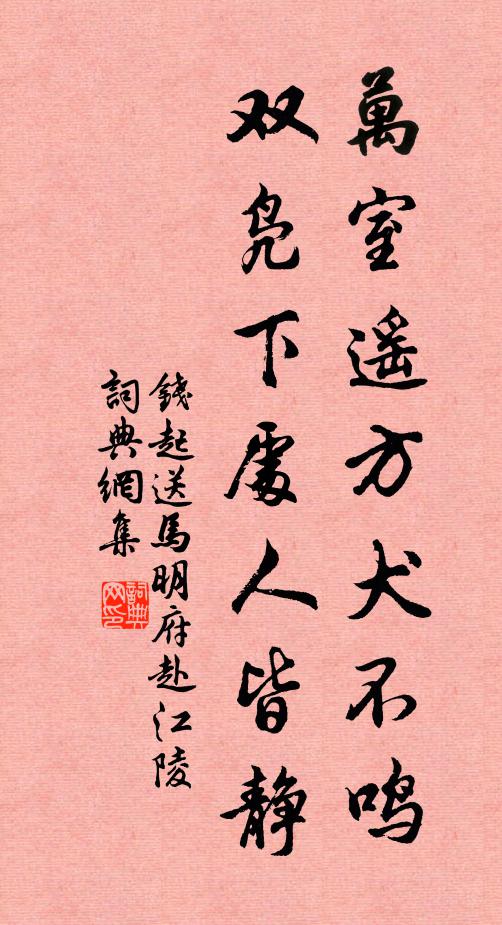 萬室遥方犬不鸣
双凫下處人皆静
錢起送馬明府赴江陵
詞典網集
詞典网印